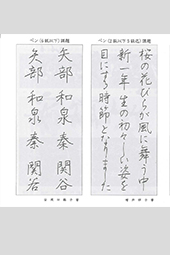 ペン(2級以下)課題
桜の花びらが風に舞う中
新一年生の初々しい姿を
目にする時節となりました
ペン(3級以下)課題
矢部 和泉 秦 関谷
矢部 和泉 秦 関谷